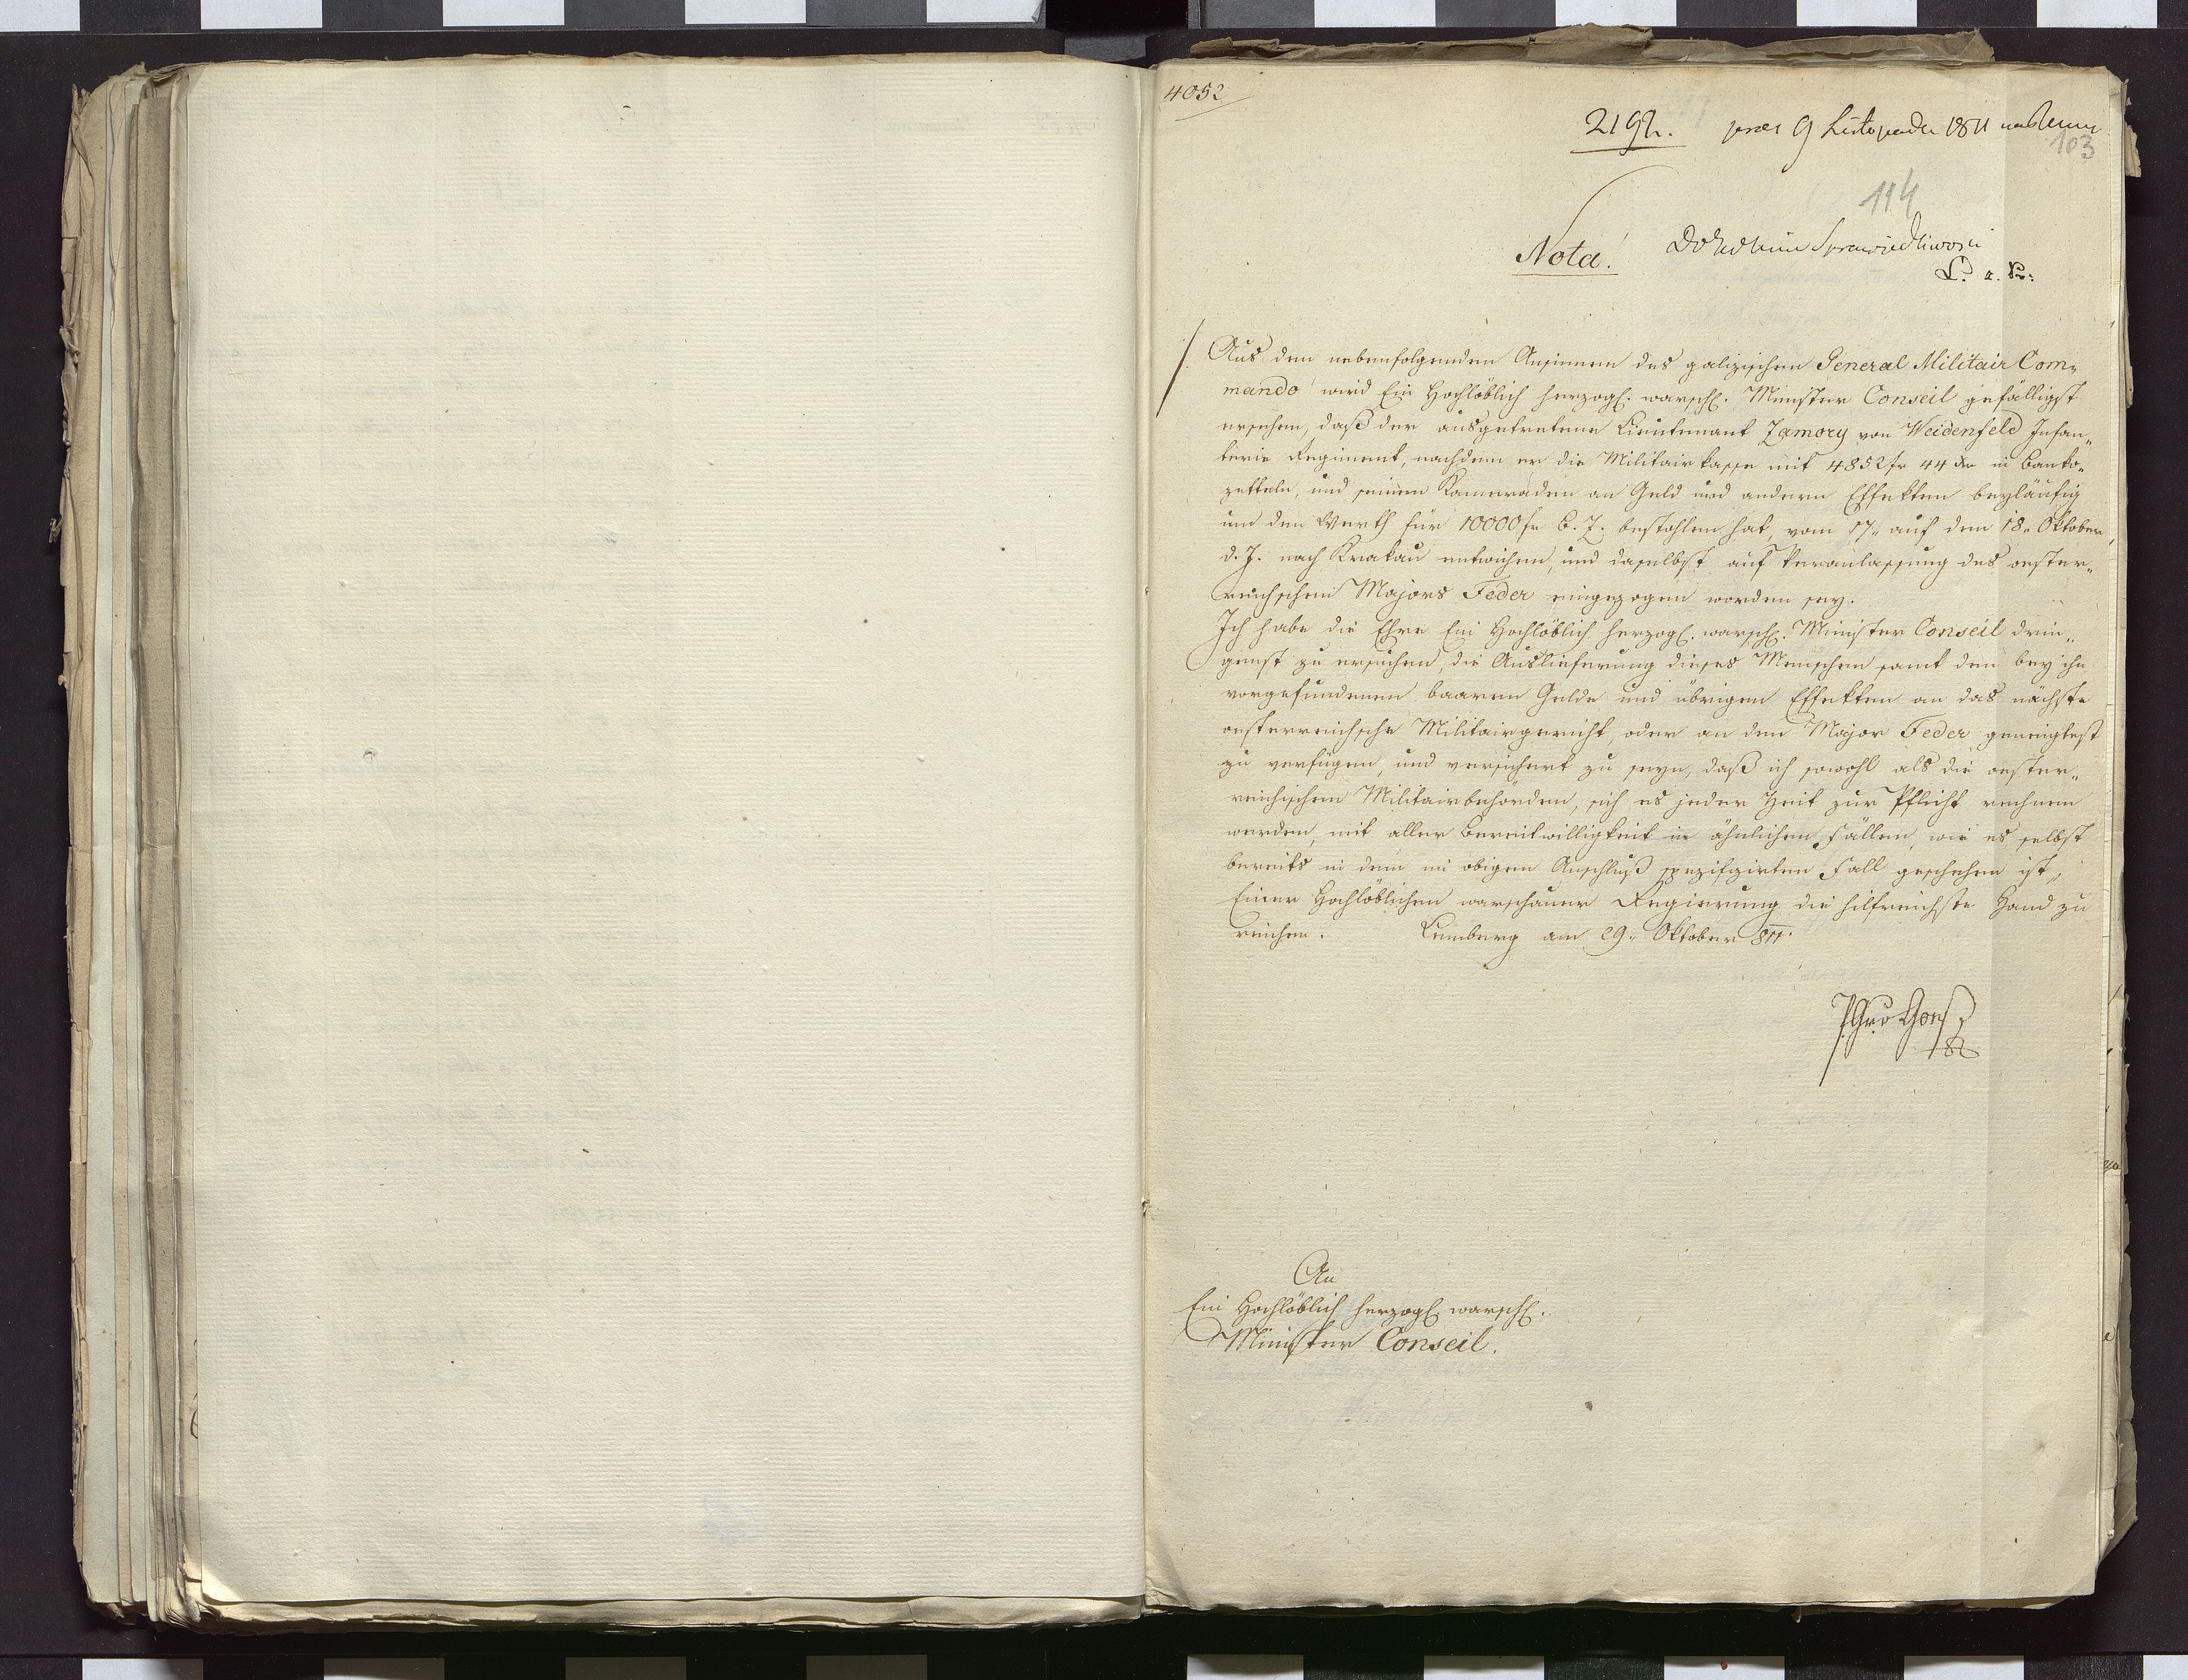 4052
2192. prez 9 Listopada 1811
103
114
Nota! Do Sprawiedliwosci
Aus dem nebenfolgenden Ansinnen des galizischen General Militair Com„
mando wird Ein Hochlöblich herzogl. warschl. Minister Conseil gefälligst
ersehen, daß der ausgetretene Lieutenant Zamory von Weidenfeld Infan„
terie Regiment, nachdem er die Militairkasse mit 4852 fr 44 xr in Banko„
zetteln, und seinen Kameraden an Geld und andern Effekten beyläufig
um den Werth für 10000 fr B. Z. bestohlen hat, vom 17„ auf den 18„ Oktober
d. J. nach Krakau entwichen, und daselbst auf Veranlassung des oester„
reichschen Majors Feder eingezogen worden sey.
Ich habe die Ehre Ein Hochlöblich herzogl. warschl. Minister Conseil drin„
genst zu ersuchen, die Auslieferung dieses Menschen samt dem bey ihm
vorgefundenen baaren Gelde und übrigen Effekten an das nächste
oesterreichsche Militairgericht, oder an den Major Feder geneigtest
zu verfügen, und versichert zu seyn, daß ich sowohl als die oester„
reichischen Militairbehörden, sich es jeder Zeit zur Pflicht rechnen
werden, mit aller Bereitwilligkeit in ähnlichen Fällen, wie es selbst
bereits in dem im obigen Anschluß spezifizirten Fall geschehen ist,
Einer Hochlöblichen warschauer Regierung die hilfreichste Hand zu
reichen. Lemberg am 29„ Oktober 811.
An
Ein Hochlöblich herzogl. warschl.
Minister Conseil.